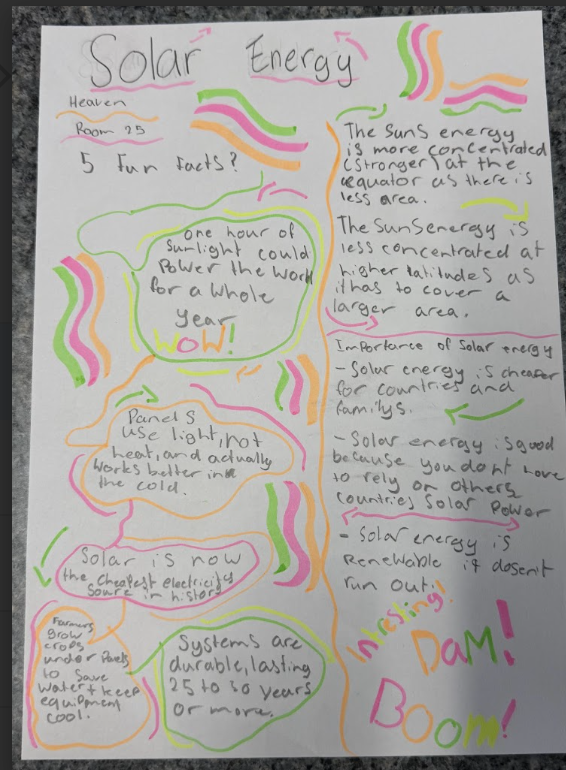 Solar Energy
Heaven
Room 25
5 fun facts?
one hour of
sunlight could
Power the World
for a whole
year
WOW!
Panels
use light, not
heat, and actually
works better in
the cold.
Solar is now
the cheapest electricity
source in history
Farmers
grow
crops
under Panels
to save
water + keep
equipment
cool.
Systems are
durable, lasting
25 to 30 years
or more.
The Suns energy
is more concentrated
(stronger) at the
equator as there is
less area.
The Suns energy is
less concentrated at
higher latitudes as
it has to cover a
larger area.
Importance of Solar energy
- Solar energy is cheaper
for countries and
familys.
- Solar energy is good
because you dont have
to rely on others
countries Solar Power
- Solar energy is
Renewable it dosen't
run out.
Intresting!
DaM!
BOOm!